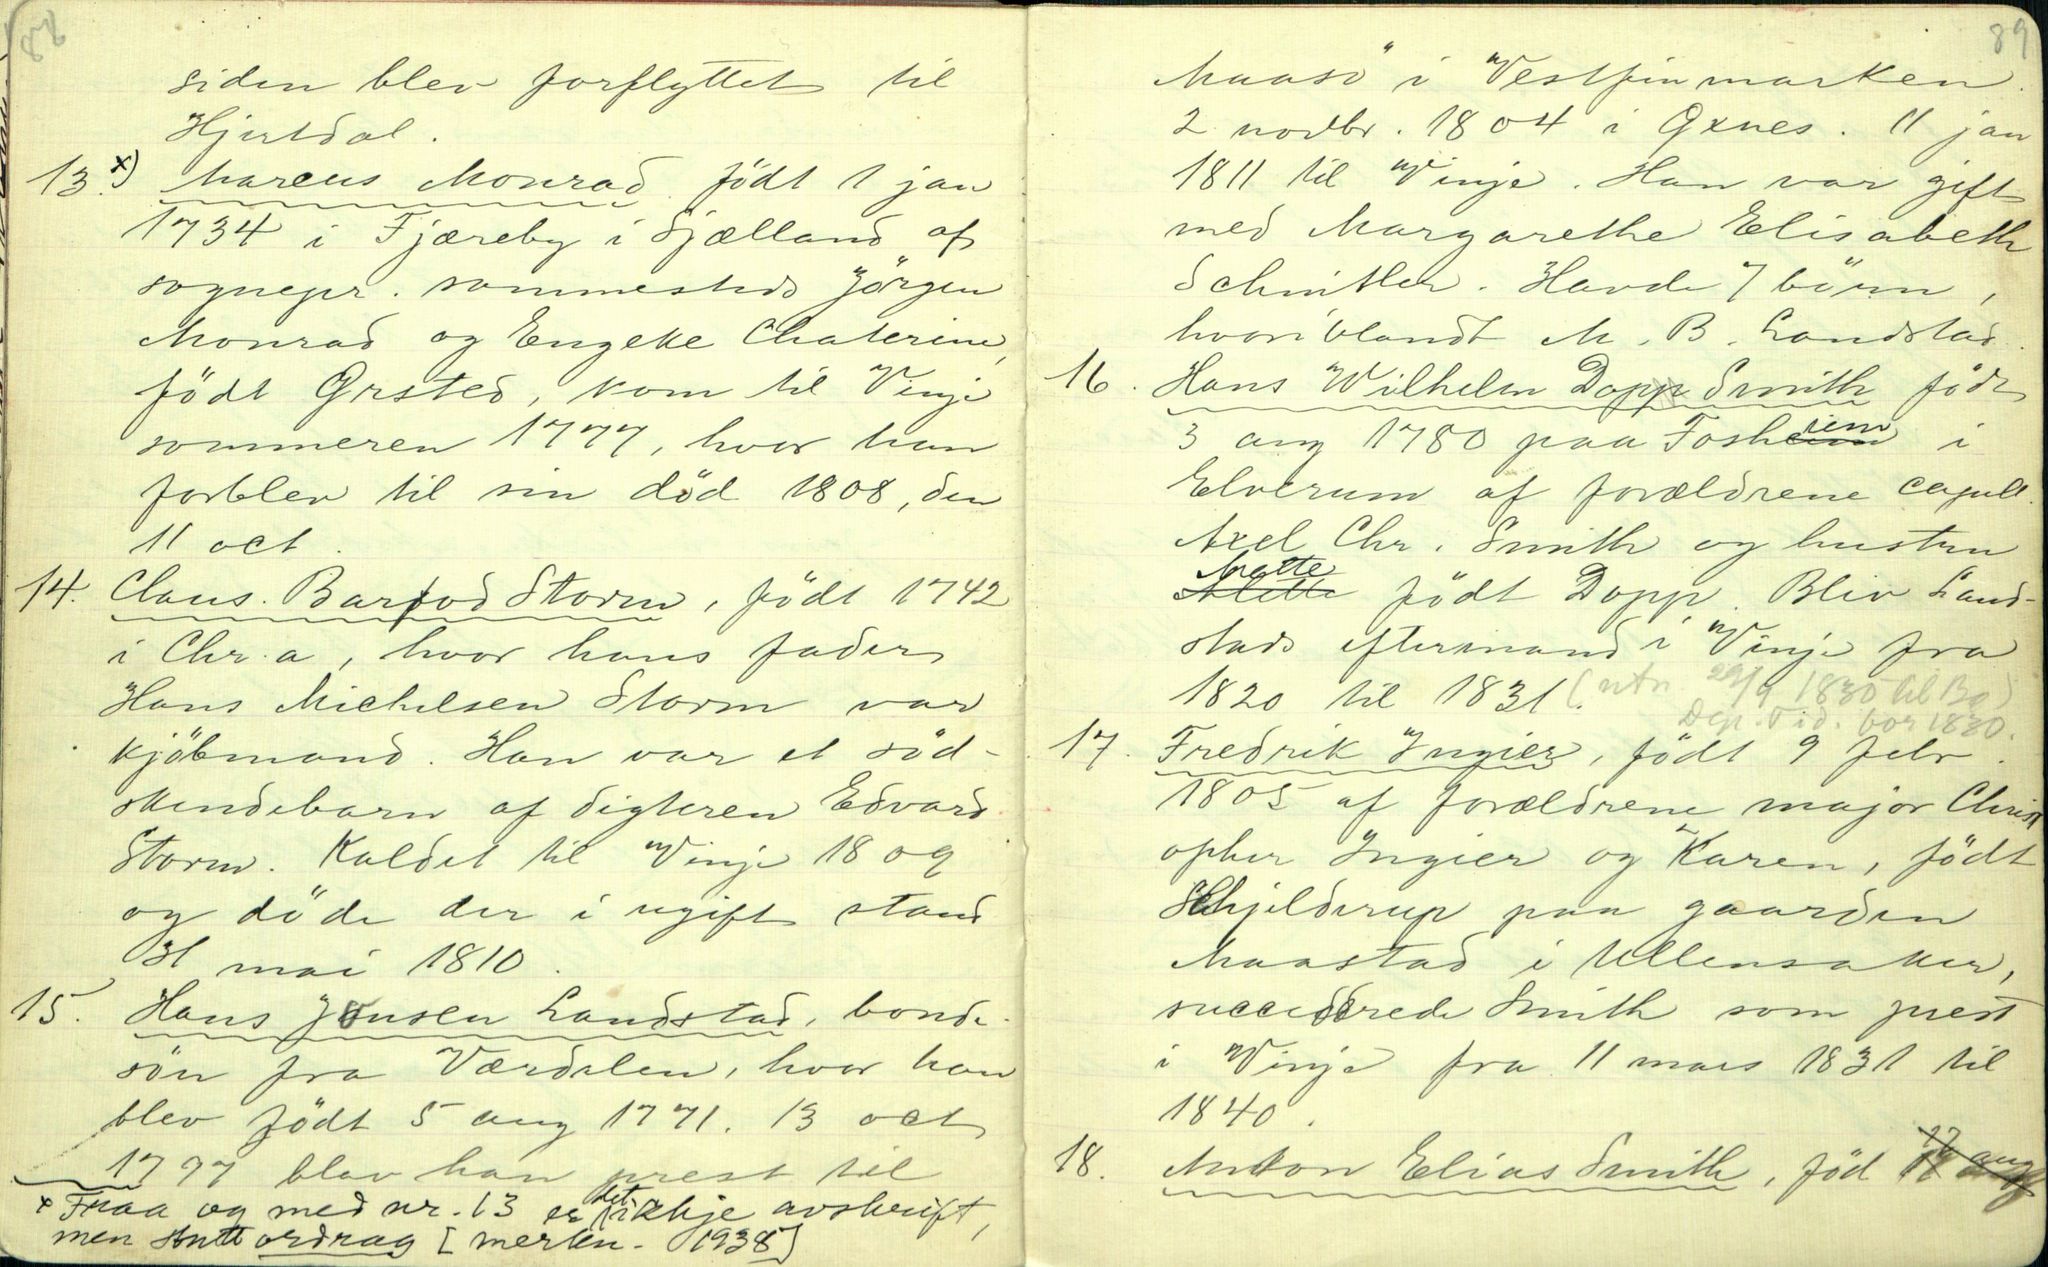 siden blev forflyttet til
Hjertdal.
13.x) Marcus Monrad født 1 jan
1734 i Fjæreby i Sjælland af
sognepr. sammesteds Jörgen
Monrad og Engeke Chaterine,
födt Ørsted, kom til Vinje
sommeren 1777, hvor han
forblev til sin död 1808, den
11 oct.
14. Claus Barfod Storm, födt 1742
i Chr.a, hvor hans fader
Hans Michelsen Storm var
kjöbmand. Han var et söd-
skendebarn af digteren Edvard
Storm. Kaldet til Vinje 1809
og döde der i ugift stand
31 mai 1810.
15. Hans Jensen Landstad, bonde-
sön fra Værdalen, hvor han
blev födt 5 aug 1771. 13 oct
1797 blev han prest til
x Fraa og med nr. 13 er det ikkje avskrift,
men stutt ordrag [merkn. 1938]
89
Maasö i Vestfinmarken.
2 novbr. 1804 i Øxnes. 11 jan
1811 til Vinje. Han var gift
med Margarethe Elisabeth
Schnitler. Havde 7 börn,
hvoriblandt M. B. Landstad.
16. Hans Wilhelm Dopp Smith födt
3 aug 1780 paa Fosheim i
Elverum af forældrene capell.
Axel Chr. Smith og hustru
Mette
Alette födt Dopp. Blev Land-
stads eftermand i Vinje fra
1820 til 1831. (utn. 29/9 1830 til Bø)
Dep. tid. for 1830.
17. Fredrik Ingier, födt 9 febr.
1805 af forældrene major Christ
opher Ingier og Karen, födt
Schjelderup paa gaarden
Maastad i Ullensaker,
succederede Smith som prest
i Vinje fra 11 mars 1831 til
1840.
18. Anton Elias Smith, föd 17 aug